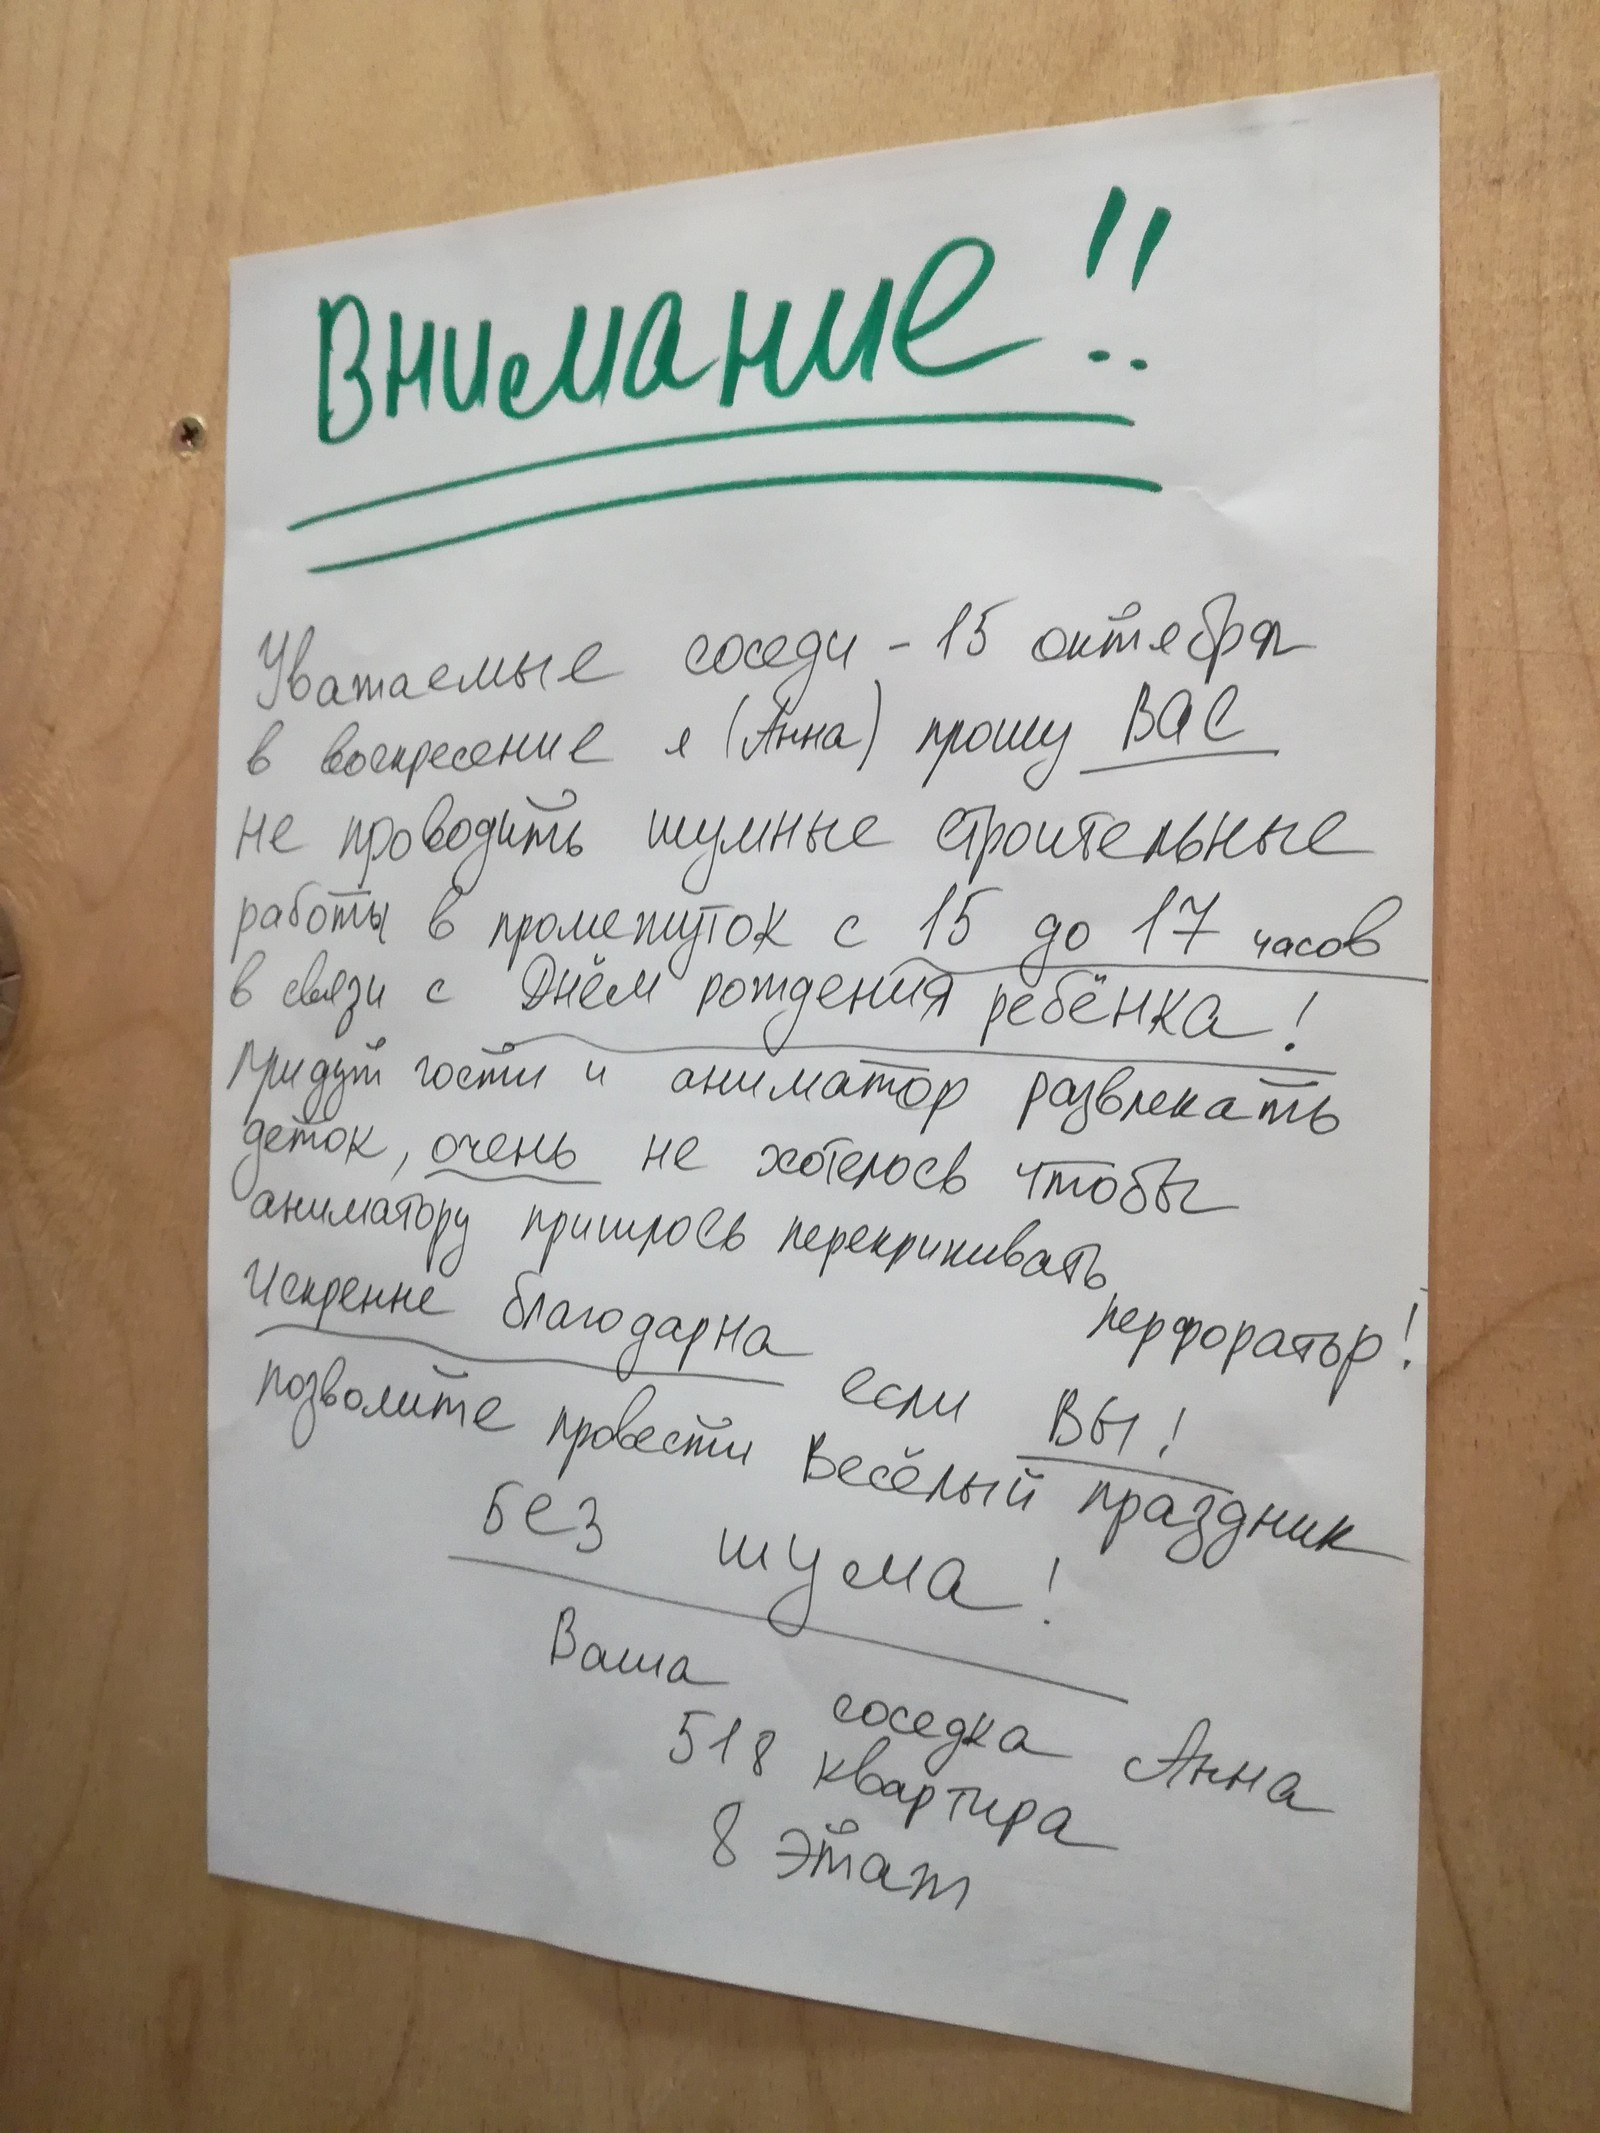 Внимание!!
Уважаемые соседи - 15 октября
в воскресение я (Анна) прошу ВАС
не проводить шумные строительные
работы в промежуток с 15 до 17 часов
в связи с Днём рождения ребёнка!
Придут гости и аниматор развлекать
деток, очень не хотелось чтобы
аниматору пришлось перекрикивать
перфоратор!
Искренне благодарна если ВЫ!
позволите провести Весёлый праздник
без шума!
Ваша соседка Анна
518 квартира
8 этаж